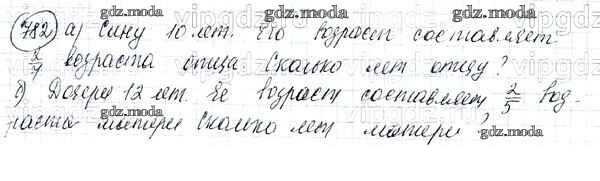 782 а) Сину 10 лет. Его возраст составляет
2/7 возраста отца Сколько лет отцу?
б) Дочери 12 лет. Ее возраст составляет 2/5 воз-
раста матери Сколько лет матери?
gdz.moda